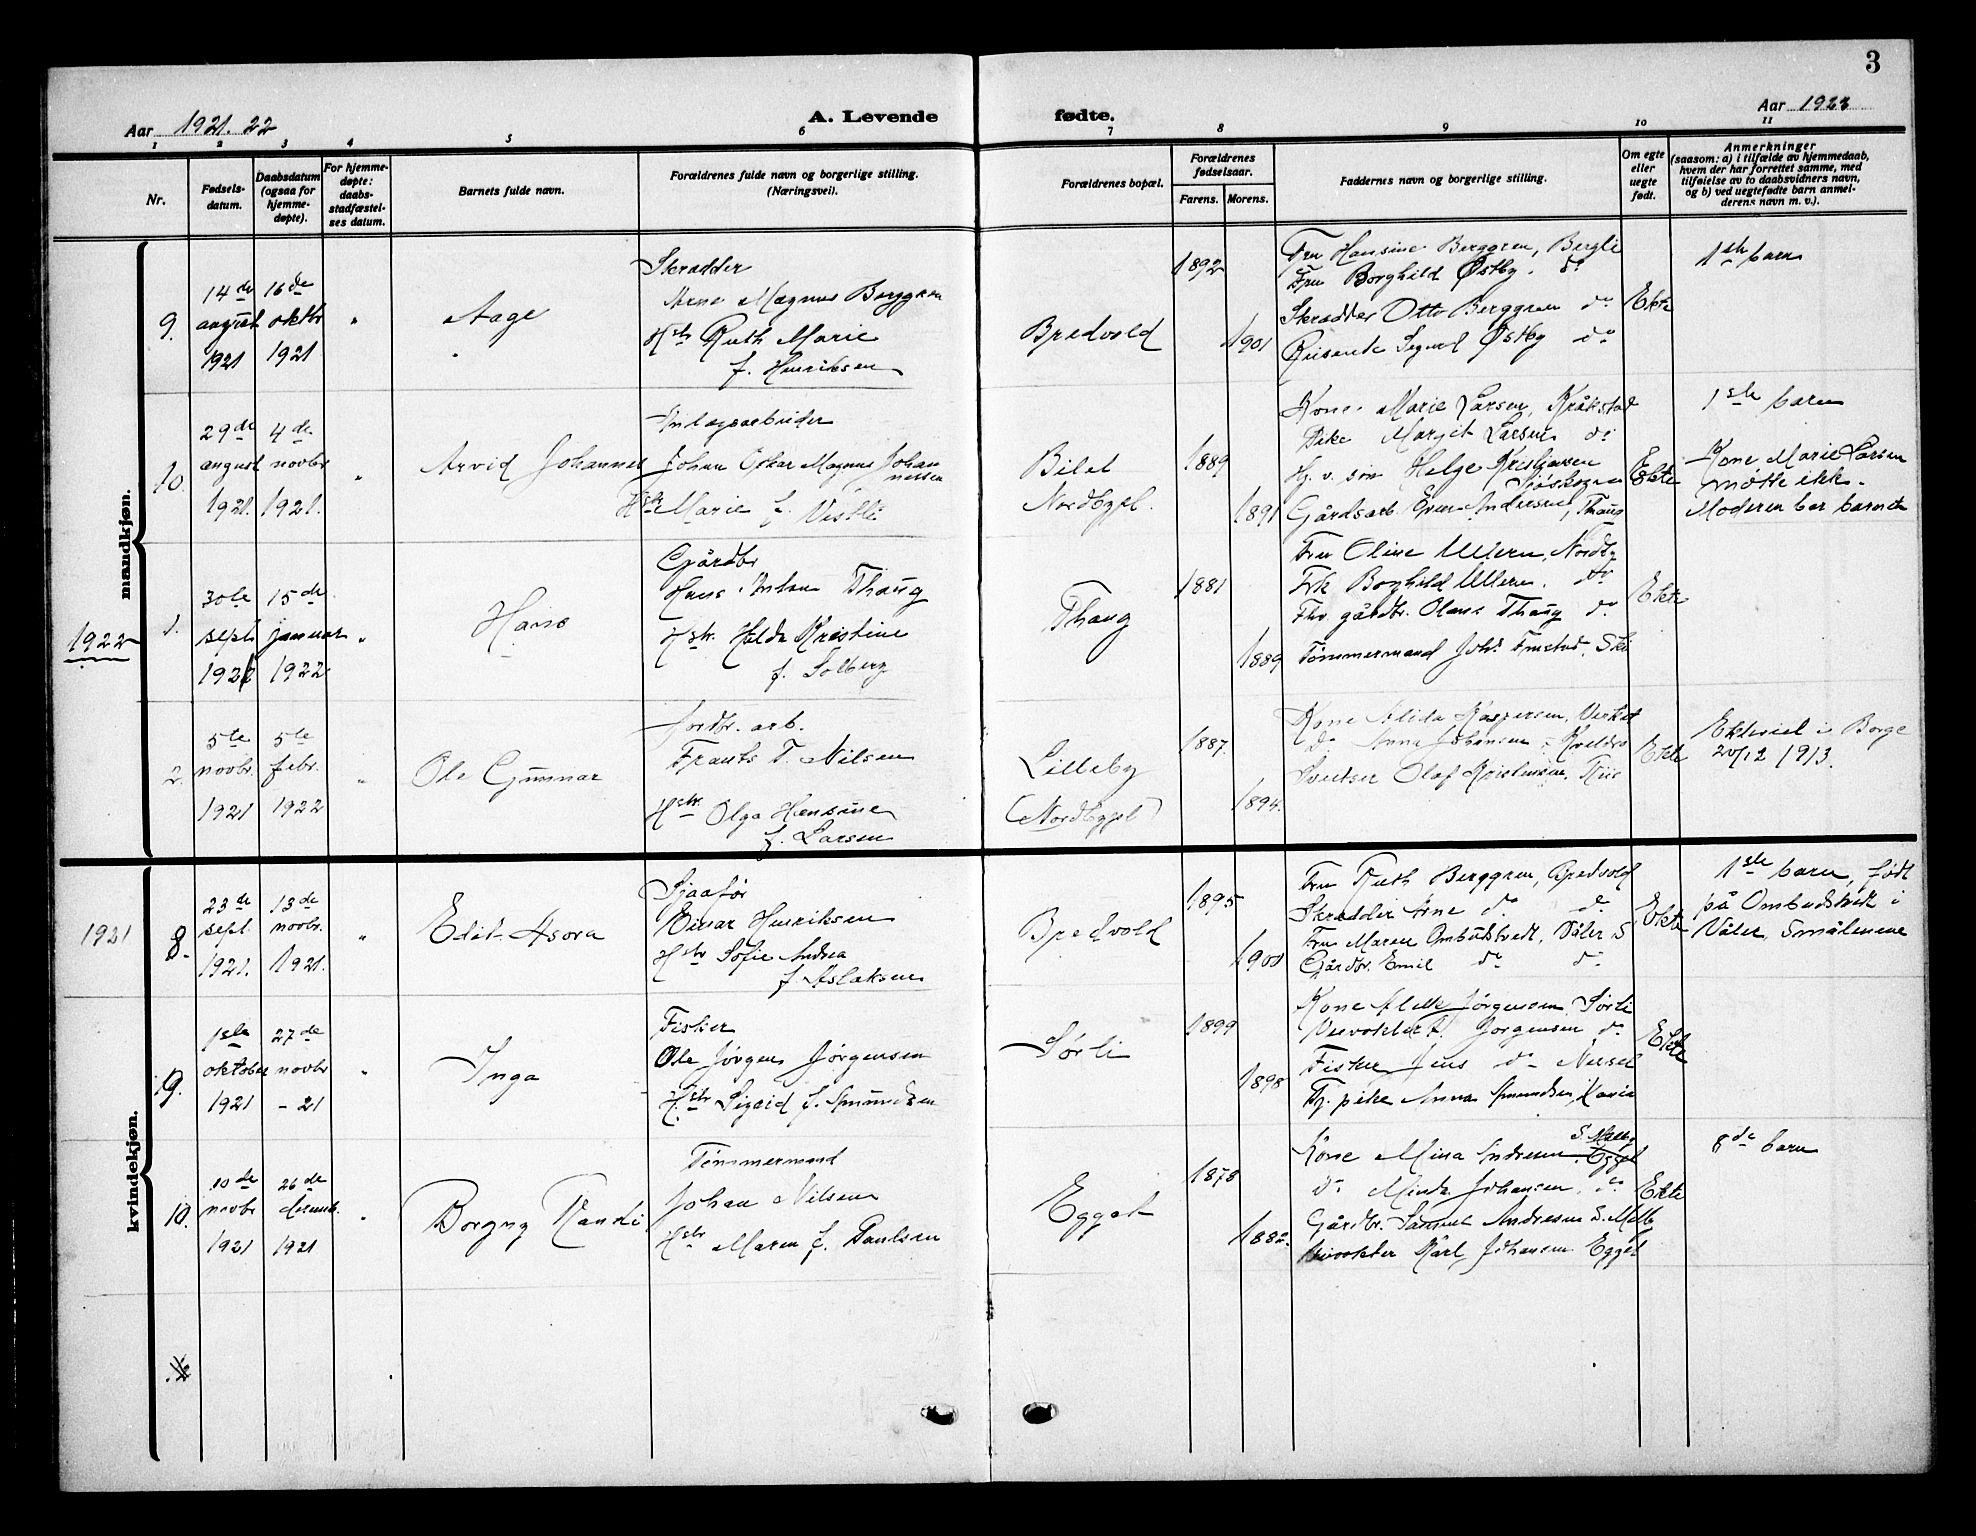 3
Aar 1921. 22
A. Levende fødte.
Aar 1922
1 2 3 4 5 6 7 8 9 10 11
Nr.
Fødsels-
datum.
Daabsdatum
(ogsaa for
hjemme-
døpte).
For hjemme-
døpte:
daabs-
stadfæstel-
ses datum.
Barnets fulde navn.
Forældrenes fulde navn og borgerlige stilling.
(Næringsvei).
Forældrenes bopæl.
Forældrenes
fødselsaar.
Farens. Morens.
Faddernes navn og borgerlige stilling.
Om egte
eller
uegte
født.
Anmerkninger
(saasom: a) i tilfælde av hjemmedaab,
hvem der har forrettet samme, med
tilføielse av to daabsvidners navn,
og b) ved uegtefødte barn anmel-
derens navn m. v.).
mandkjøn.
9.
14de august 1921
16de oktbr 1921
"
Aage
Skrædder
Arne Magnus Berggren
Hstr Ruth Marie
f. Henriksen
Bredvold
1892
1901
Fru Hansine Berggren, Bergli
Fru Borghild Østby. do
Skrædder Otto Berggren do
Reisende Sigurd Østby do
Ekte
1ste barn
10.
29de august 1921.
4de novbr 1921.
"
Arvid Johannes
Johan Oskar Magnus Johan
nessen
Hstr Marie f. Vestli
Bilet
Nordbygd.
1889
1891
Kone Marie Larsen, Kråkstad
Pike Margit Larsen do
Hj. v. søn Helge Kristiansen
Sjøskogen
Gårdsarb. Andersen, Thaug
Ekte
1ste barn
Kone Marie Larsen
møtte ikke.
Moderen bar barnet
1922
1.
30te sept 1921
15de januar 1922
"
Hans
Gårdbr
Hans Anton Thaug
Hstr. Hilda Kristine
f. Solberg
Thaug
1881
1889
Fru Oline Ullern, Nordby
Frk Borghild Ullern. do
Fhv. gårdbr. Olaus Thaug do
Tømmermand Johs Frustad, Ski
Ekte
2.
5te novbr. 1921
5te febr. 1922
"
Ole Gunnar
Jordbr. arb.
Frants T. Nilsen
Hstr. Olga Hansine
f. Larsen
Lilleby
(Nordbygd)
1887.
1894.
Kone Alida Kaspersen,
do Anna Johansen,
Sveitser Olaf Kristensen, Riis
Ekte
Ekteviet i Borge
20/12 1913.
kvindekjøn.
1921
8.
23de sept. 1921.
13de novbr. 1921.
"
Edit Asora
Sjaafør
Einar Henriksen
Hstr Sofie Andrea
f. Aslaksen
Bredvold
1895
1900
Fru Ruth Berggren, Bredvold
Skrædder Arne do do
Fru Maren Ombudstvedt, Våler S
Gårdbr. Emil do do
Ekte
1ste barn, født
på Ombudstvedt i
Våler, Smålenene
9.
1ste oktober 1921
27de novbr - 21
"
Inga
Fisker
Ole Jørgen Jørgensen
Hstr Sigrid f. Amundsen
Sørli
1899
1898
Kone Alette Jørgensen Sørli
Veivokter A. Jørgensen do
Fisker Jens do Nesset
Tj. pike Anna Amundsen,
Ekte
10.
10de novbr 1921
26de decemb. 1921
"
Borgny Randi
Tømmermand
Johan Nilsen
Hstr Maren f. Paulsen
Egget
1878
1882.
S. Melby
Kone Mina Andresen, Egget
do Minda Johansen, do
Gårdbr. Samuel Andresen S. Melby
Veivokter Karl Johansen Egget
Ekte
8de barn